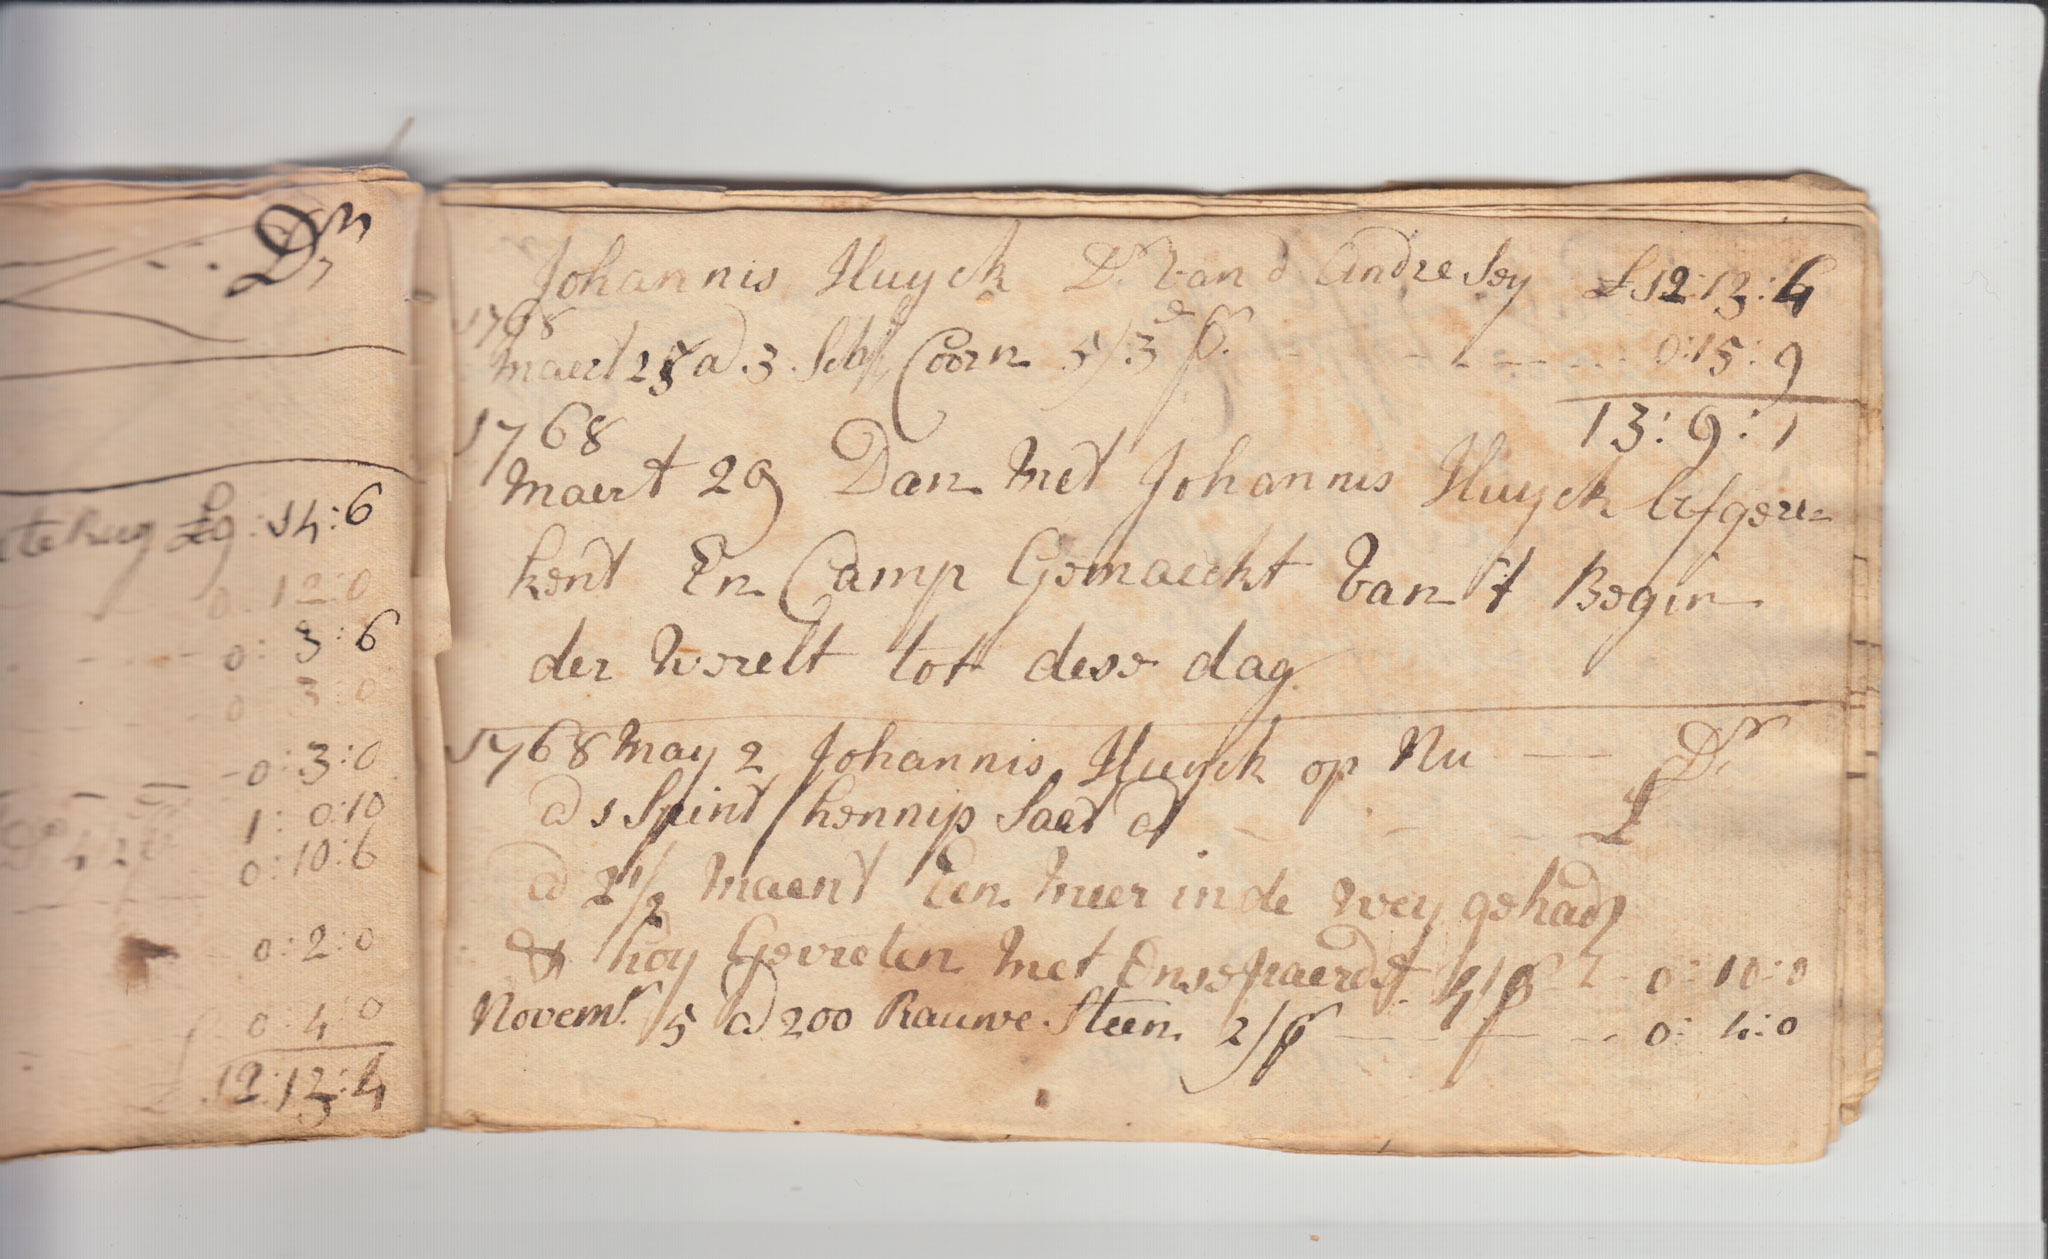 Dr
te Rug £9:14:6
0:12:0
0:3:6
0:3:0
0:3:0
1:0:10
0:10:6
0:2:0
0:4:0
£12:13:4
Johannis Huyck Dr Van d Andre Sey £12:13:4
1768
Maert 25 @ 3 Sch Coorn 5/3 p. 0:15:9
13:9:1
1768
Maert 29 Dan Met Johannis Huyck Afgere=
kent En Camp Gemaeckt Van t Begin
der Werelt tot dese dag
1768 May 2 Johannis Huyck op Nu Dr
@ 1 Spint hennip Saet @ £
@ 2 1/2 Maent Een Meer in de Wey gehadt
& hoy Gevreten Met Onse paerdt 4/p 0:10:0
Novemr 5 @ 200 Rauwe Steen 2/p 0:4:0